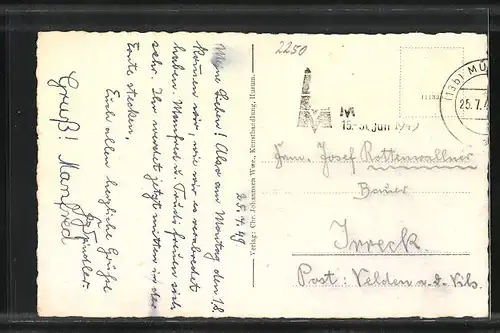 25.7.49
Meine Lieben! Also am Montag den 1.8.
kommen wir, wie wir es verabredet
haben. Manfred u. Trudi freuen sich
sehr. Ihr werdet jetzt mitten in der
Ernte stecken.
Euch allen herzliche Grüße
Gruß! Manfred
Verlag Chr. Johannsen Wwe. Kunsthandlung, Husum.
2250
M
15.-31. Juli 1949
(13b) MÜ
25.7.4
Herrn Josef Rottenwallner
Bauer
Irreck.
Post: Velden a.d. Vils.